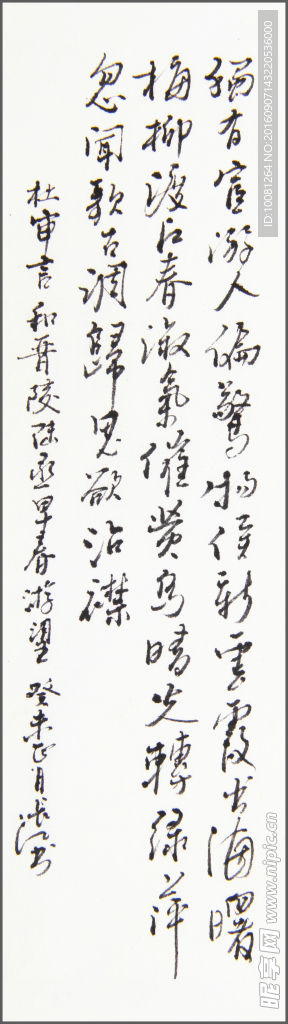 獨有宦游人偏驚物候新雲霞出海曙
梅柳渡江春淑氣催黄鸟晴光轉緑蘋
忽聞歌古調歸思欲沾襟
杜审言和晋陵陆丞早春游望 癸未正月
ID:10081264 NO:20160907143220536000
昵享网 www.nipic.cn